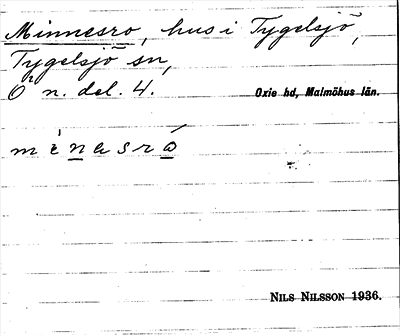 Minnesro, hus i Tygelsjö,
Tygelsjö sn,
Ö n. del. 4. Oxie hd, Malmöhus län.
NILS NILSSON 1936.